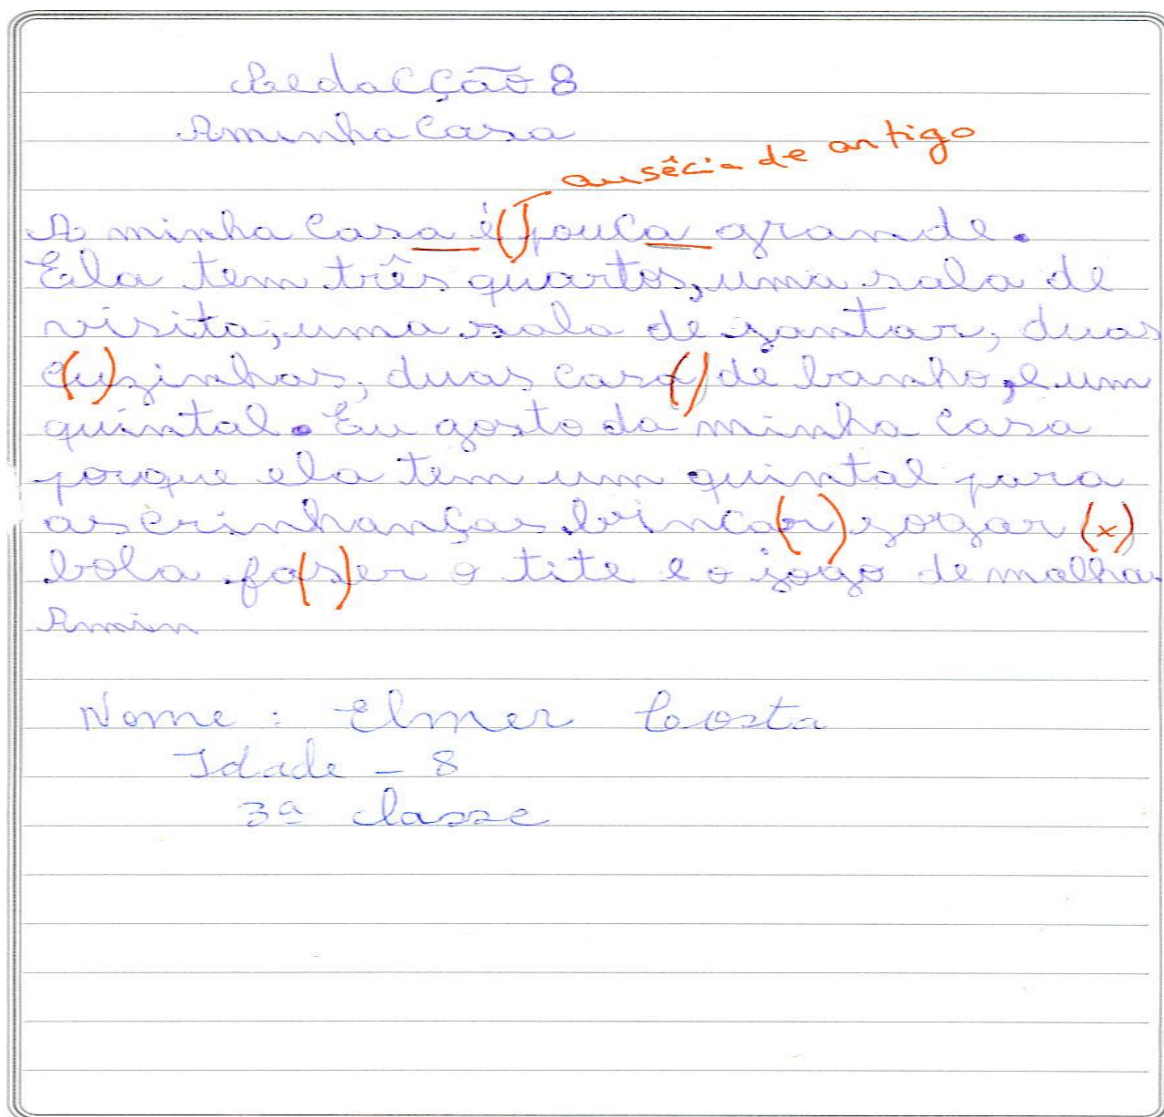 Redacção 8
Aminha Casa
ausêcia de artigo
A minha Casa é () pouca grande.
Ela tem três quartos, uma sala de
visita, uma sala de jantar, duas
(cu)zinhas, duas casa() de banho, e um
quintal. Eu gosto da minha Casa
porque ela tem um quintal para
as crinhanças brinca(r) jogar (x)
bola fa(s)er o tite e o jogo de malha.
Amin
Nome : Elmer Costa
Idade - 8
3ª classe